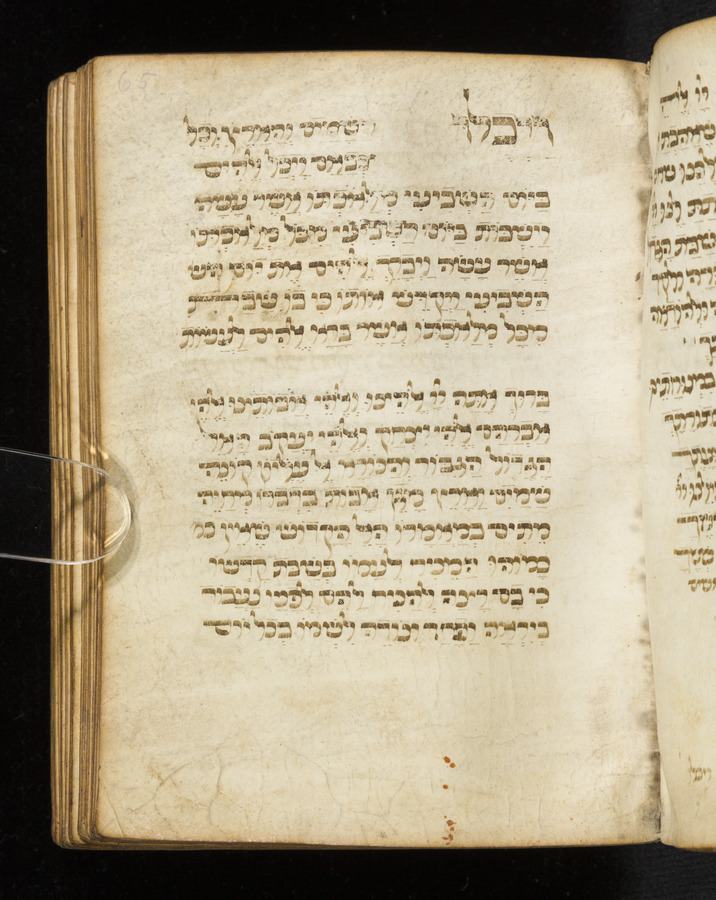 65
ויכלו השמים והארץ וכל
צבאם ויכל אלהים
ביום השביעי מלאכתו אשר עשה
וישבות ביום השביעי מכל מלאכתו
אשר עשה ויברך אלהים את יום הש
השביעי ויקדש אותו כי בו שבת
מכל מלאכתו אשר ברא אלהים לעשות
ברוך אתה יי אלהינו ואלהי אבותינו אלהי
אברהם אלהי יצחק ואלהי יעקב האל
הגדול הגבור והנורא אל עליון קונה
שמים וארץ מגן אבות בדברו מחיה
מתים במאמרו האל הקדוש שאין כמ
כמוהו המניח לעמו בשבת קדשו
כי בם רצה להניח להם לפניו נעבוד
ביראה ופחד ונודה לשמו בכל יום